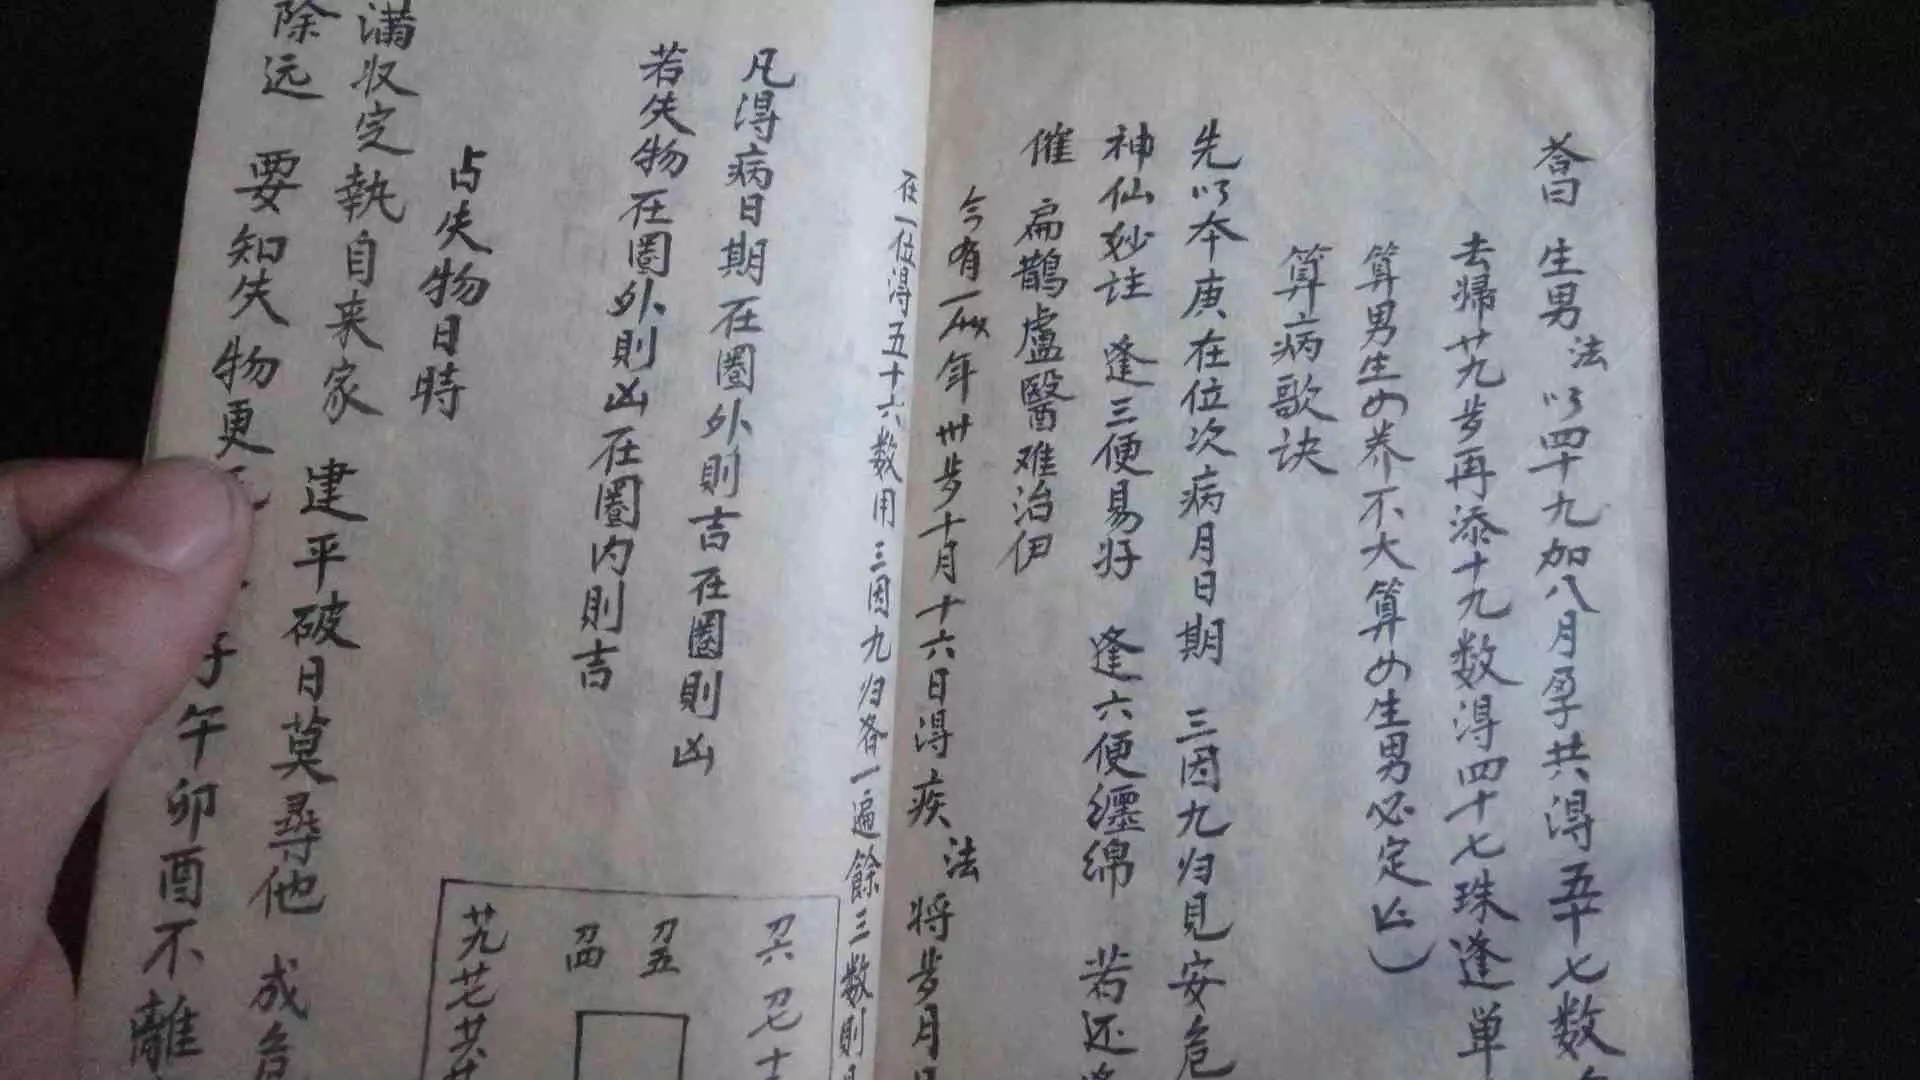 答曰 生男法 以四十九加八月孕共得五十七数
去歸廿九岁再添十九数得四十七珠逢单
算男生女养不大算女生男必定亡
算病歌诀
先以本庚在位次病月日期 三因九归見安危
神仙妙诀 逢三便易好 逢六便纏绵 若还
催 扁鵲盧醫难治伊
今有一 年卅岁十月十六日得疾 法 将岁月日
在一位得五十六数用三因九归各一遍餘三数則
凡得病日期在圈外則吉在圈則凶
若失物在圈外則凶在圈内則吉
占失物日時
满收定執自来家 建平破日莫尋他 成危
除远 要知失物更 子午卯酉不離
刀六 刀七
刀五
刀四
廿九 廿七